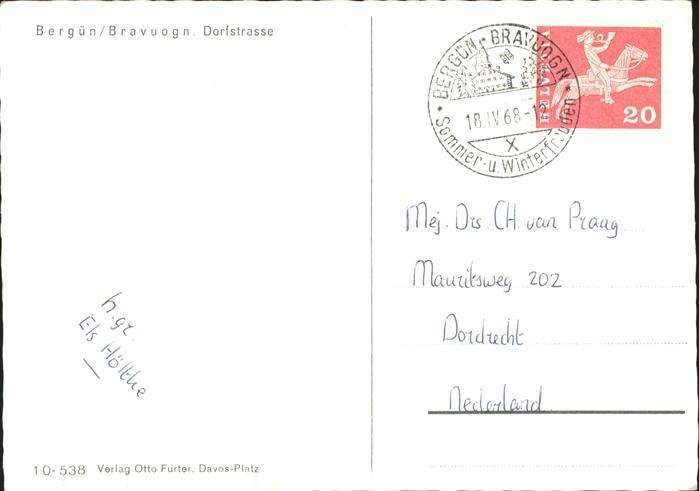 Bergün/Bravuogn. Dorfstrasse
BERGÜN * BRAVUOGN
18.IV.68-12
X
* Sommer-u. Winterfreuden *
HELVETIA
20
Mej. Drs. CH. van Praag
Mauritsweg 202
Dordrecht
Nederland
h.gr.
Els Hölthe
10-538 Verlag Otto Furter, Davos-Platz